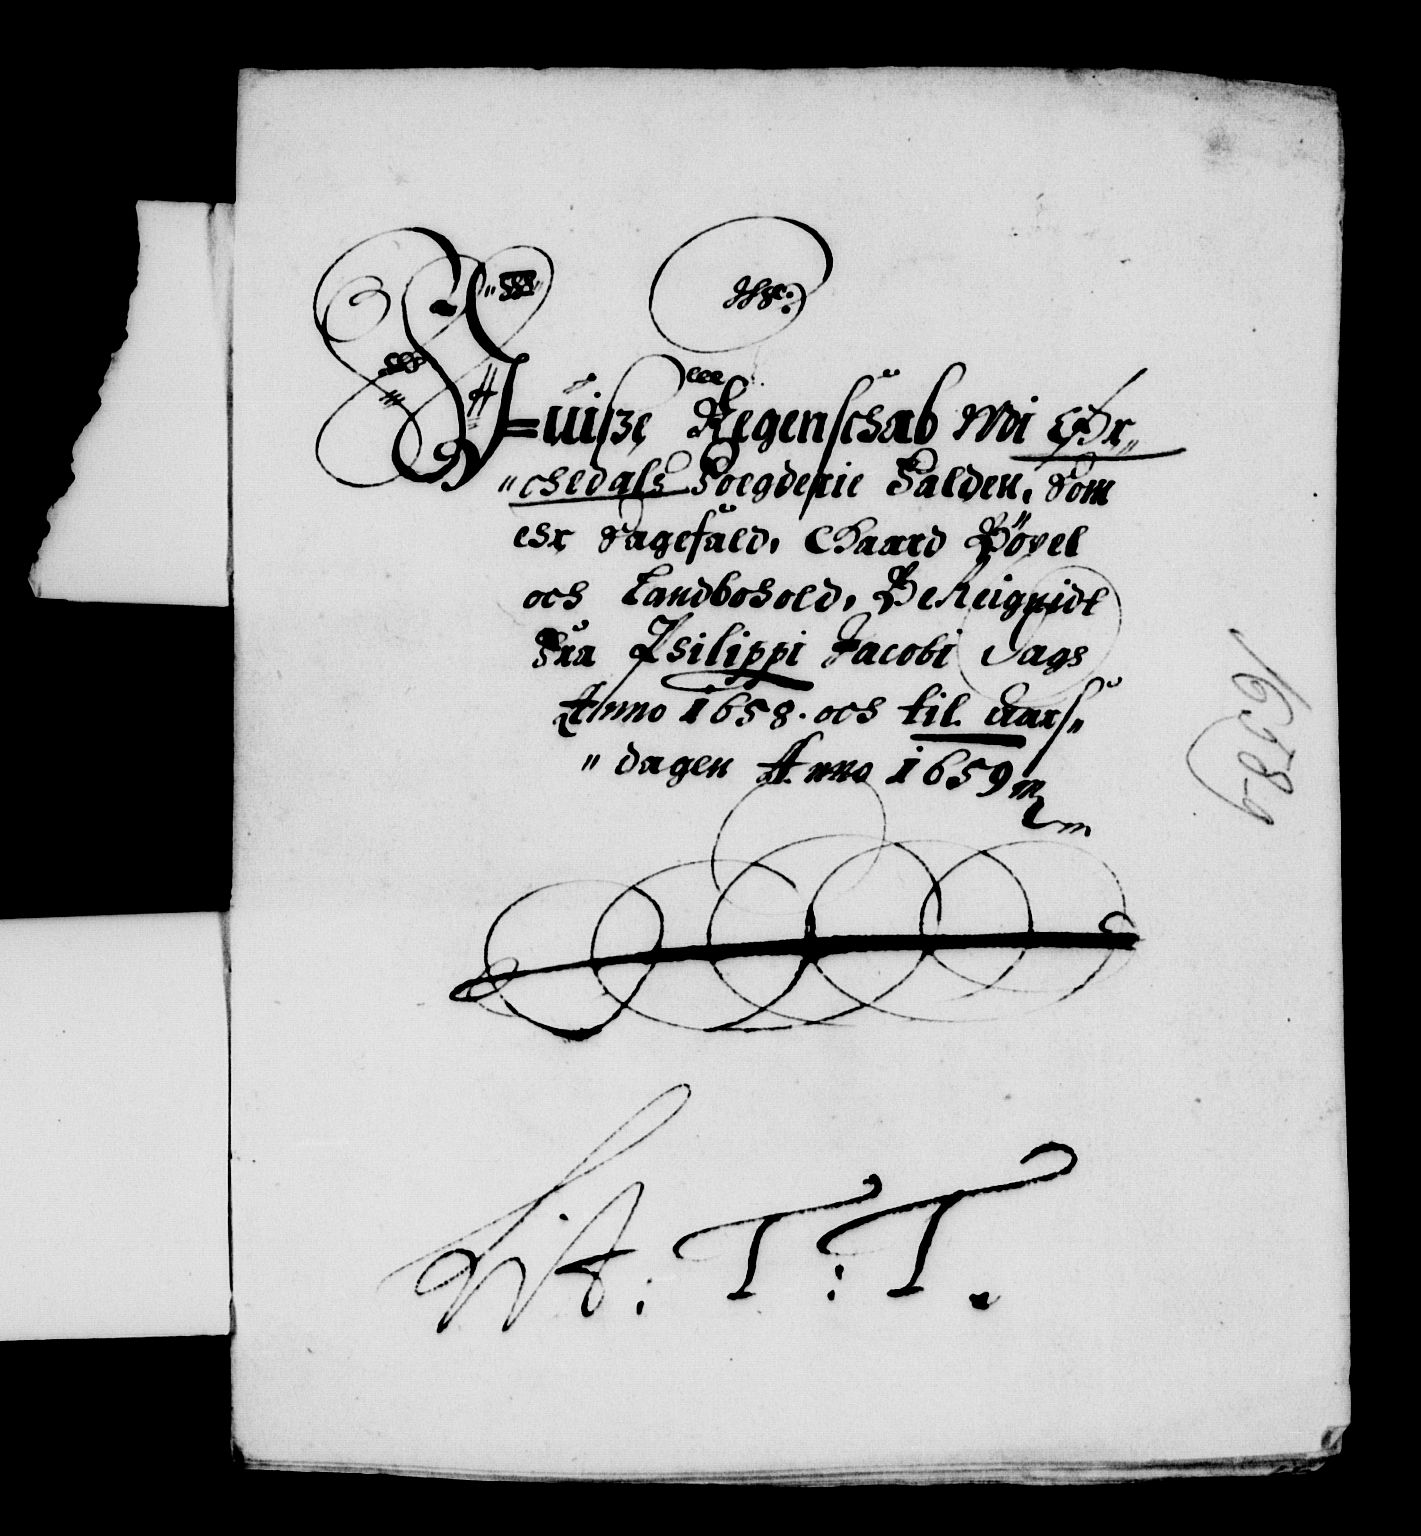 Wisze Regenschab Udi Ehr„
„chsdals Foegderie Falden, Som
ehr Sagefald, Ehaard Böxel
och Landbohold, Bereignidt
Fra Philippi Jacobi Dags
Anno 1658. och til Aars„
„dagen Anno 1659
Lit: T: T.
1658-9